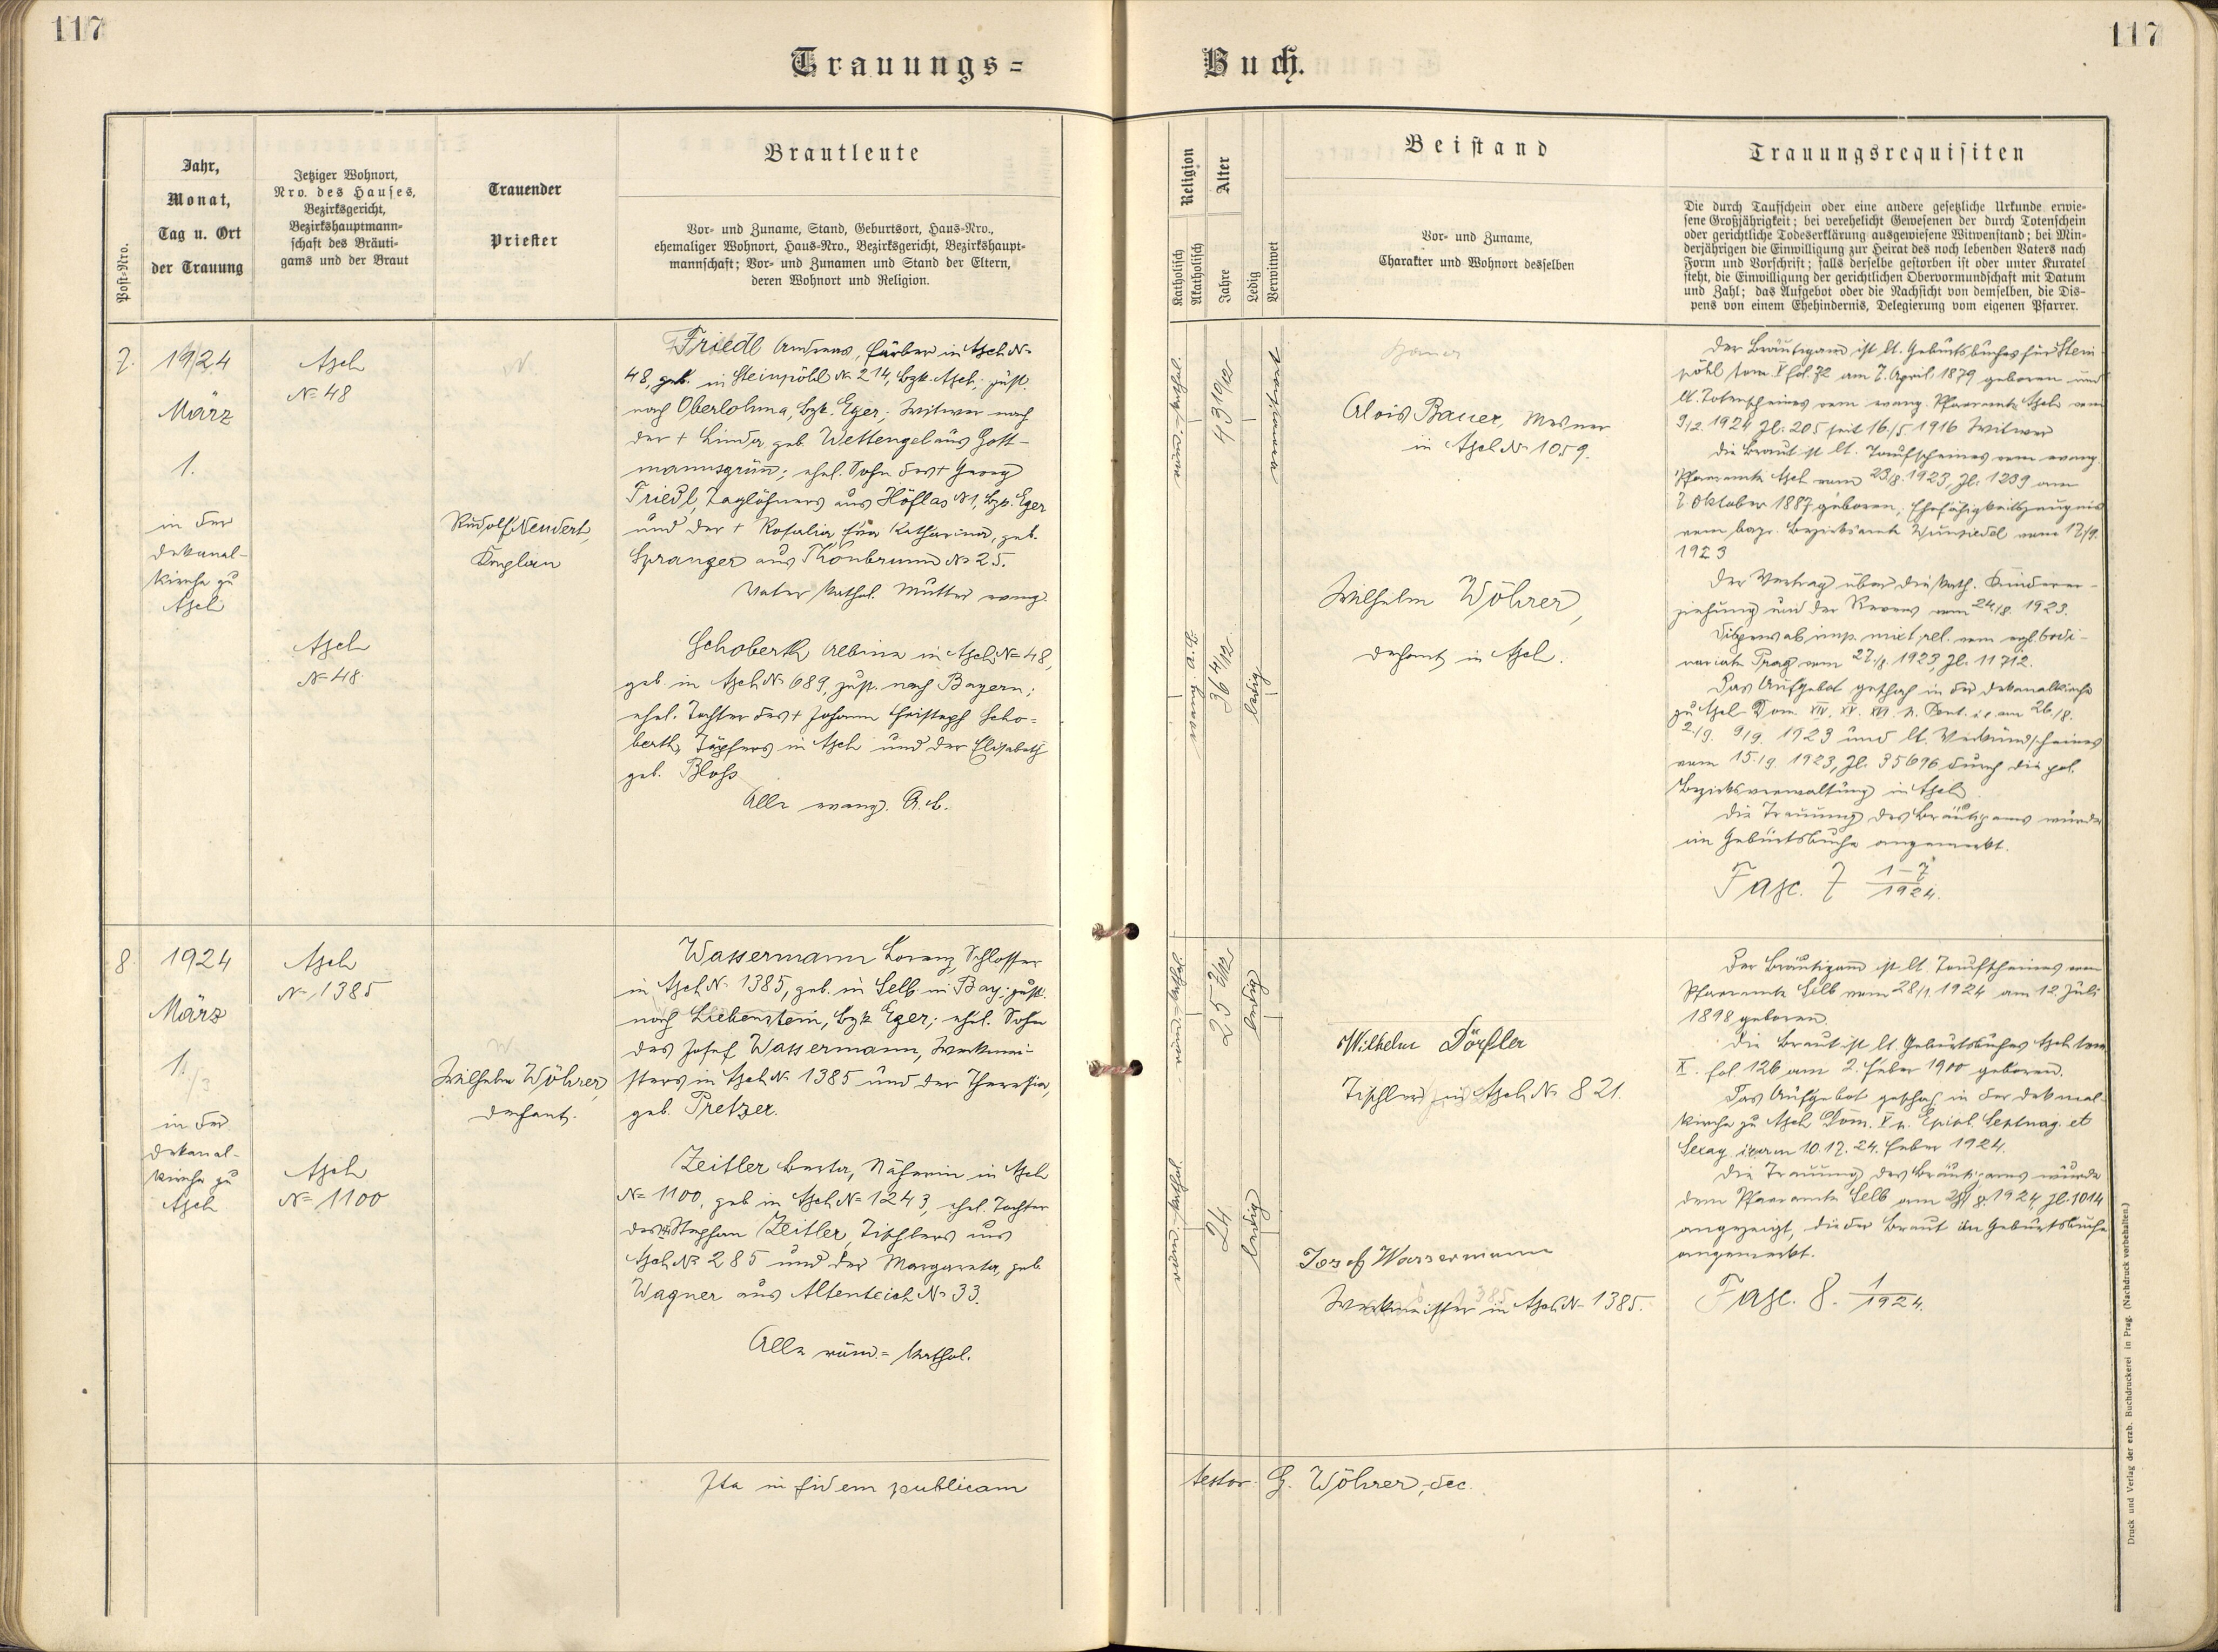 117
117
Trauungs=
Buch.
Post-Nro.
Jahr,
Monat,
Tag u. Ort
der Trauung
Jetziger Wohnort,
Nro. des Hauses,
Bezirksgericht,
Bezirkshauptmann-
schaft des Bräuti-
gams und der Braut
Trauender
Priester
Brautleute
Vor- und Zuname, Stand, Geburtsort, Haus-Nro.,
ehemaliger Wohnort, Haus-Nro., Bezirksgericht, Bezirkshaupt-
mannschaft; Vor- und Zunamen und Stand der Eltern,
deren Wohnort und Religion.
Religion
Katholisch
Akatholisch
Alter
Jahre
Ledig
Verwitwet
Beistand
Vor- und Zuname,
Charakter und Wohnort desselben
Trauungsrequisiten
Die durch Taufschein oder eine andere gesetzliche Urkunde erwie-
sene Großjährigkeit; bei verehelicht Gewesenen der durch Totenschein
oder gerichtliche Todeserklärung ausgewiesene Witwenstand; bei Min-
derjährigen die Einwilligung zur Heirat des noch lebenden Vaters nach
Form und Vorschrift; falls derselbe gestorben ist oder unter Kuratel
steht, die Einwilligung der gerichtlichen Obervormundschaft mit Datum
und Zahl; das Aufgebot oder die Nachsicht von demselben, die Dis-
pens von einem Ehehindernis, Delegierung vom eigenen Pfarrer.
7.
1924
März
1.
in der
Dekanal-
kirche zu
Asch
Asch
N= 48
Asch
N= 48.
Rudolf Neudert,
Kaplan
Friedl Andreas, Färber in Asch N=
48, geb. in Steinpöhl N= 214, Bzk. Asch; zust.
nach Oberlohma, Bzk. Eger; Witwer nach
der + Linda geb. Wettengel aus Gott-
mannsgrün; ehel. Sohn des + Georg
Friedl, Taglöhners aus Höflas N= 1, Bzk. Eger
und der + Rosalia Eva Katharina, geb.
Spranger aus Thonbrunn N= 25.
Vater kathol. Mutter evang.
Schoberth Albine in Asch N= 48,
geb. in Asch N= 689, zust. nach Bayern;
ehel. Tochter des + Johann Christoph Scho-
berth, Töpfers in Asch und der Elisabeth
geb. Bloß
Alle evang. A.B.
43 10/12
verwitwet
evang. A.B.
36 4/12
ledig
Alois Bauer, Mesner
in Asch N= 1059.
Wilhelm Wöhrer,
Dechant in Asch.
Der Bräutigam ist lt. Geburtsbuches für Stein-
pöhl tom. V fol. 72 am 7. April 1879 geboren und
lt. Totenscheines vom evang. Pfarramte Asch vom
9/2. 1924 Zl. 205 seit 16./5 1916 Witwer
Die Braut ist lt. Taufscheines vom evang.
Pfarramte Asch vom 23./8. 1923, Zl. 1239 am
7. Oktober 1887 geboren; Ehefähigkeitszeugnis
vom bayr. Bezirksamte Wunsiedel vom 17/9.
1923
Der Vertrag über die kath. Kinderer-
ziehung und der Revers vom 24./8. 1923.
Dispens ab imp. mixt. rel. vom erzb. Ordi-
nariate Prag vom 27./8. 1923, Zl. 11712.
Das Aufgebot geschah in der Dekanalkirche
zu Asch Dom XIV. XV. XVI. p. Pent. i.e. am 26./8.
2./9. 9/9. 1923 und lt. Verkündscheines
vom 15./9. 1923, Zl. 35696 durch die pol.
Bezirksverwaltung in Asch.
Die Trauung des Bräutigams wurde
im Geburtsbuche angemerkt.
Fasc. 7 1-7/1924.
8.
1924
März
1.
in der
Dekanal-
kirche zu
Asch
Asch
N= 1385
Asch
N= 1100
Wilhelm Wöhrer,
Dechant.
Wassermann Lorenz, Schlosser
in Asch N= 1385, geb. in Selb in Bay. zust.
nach Liebenstein, Bzk Eger; ehel. Sohn
des Josef Wassermann, Werkmei-
sters in Asch N= 1385 und der Theresia,
geb. Pretzer.
Zeitler Berta, Näherin in Asch
N= 1100, geb. in Asch N= 1243, ehel. Tochter
des Stephan Zeitler, Tischlers aus
Asch N= 285 und der Margareta, geb.
Wagner aus Altenteich N= 33.
Alle röm.= kathol.
25
ledig
24
ledig
Wilhelm Dörfler
Tischler in Asch N= 821.
Josef Wassermann
Werkmeister in Asch N= 1385.
Der Bräutigam ist lt. Taufscheines vom
Pfarramte Selb vom 28/1. 1924 am 12. Juli
1898 geboren.
Die Braut ist lt. Geburtsbuches Asch tom.
X. fol 126 am 2. Feber 1900 geboren.
Das Aufgebot geschah in der Dekanal-
kirche zu Asch Dom. V p. Epiph. Septuag. et
Sexag. i.e. am 10. 17. 24. Feber 1924.
Die Trauung des Bräutigams wurde
dem Pfarramte Selb am 1924, Zl. 1014
angezeigt, die der Braut im Geburtsbuche
angemerkt.
Fasc. 8. 1/1924.
Ita in fidem publicam
testor G. Wöhrer, dec.
Druck und Verlag der erzb. Buchdruckerei in Prag. (Nachdruck vorbehalten.)